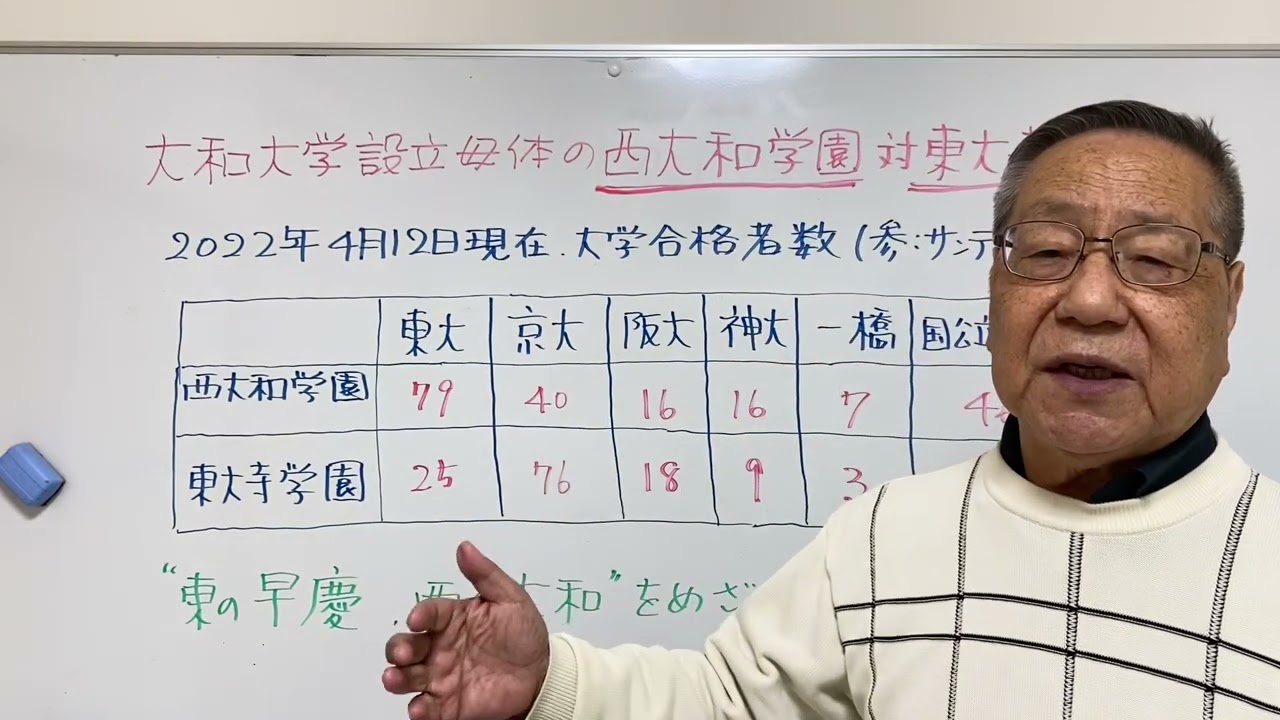 大和大学設立母体の西大和学園対東大
2022年4月12日現在.大学合格者数(参:サンデ
東大 京大 阪大 神大 一橋 国公立
西大和学園 79 40 16 16 7
東大寺学園 25 76 18 9 3
"東の早慶、西 大和"をめざ